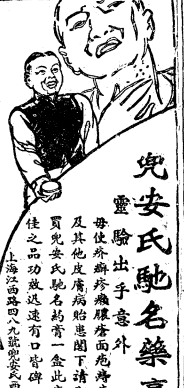 兜安氏馳名藥膏
靈驗出乎意外
毋使疥癬疹癩膿瘡面皰痔
及其他皮膚病貽患閣下請
買兜安氏馳名葯膏一盒此
佳之品功效迅速有口皆碑
上海江西路四八九號兜安氏西